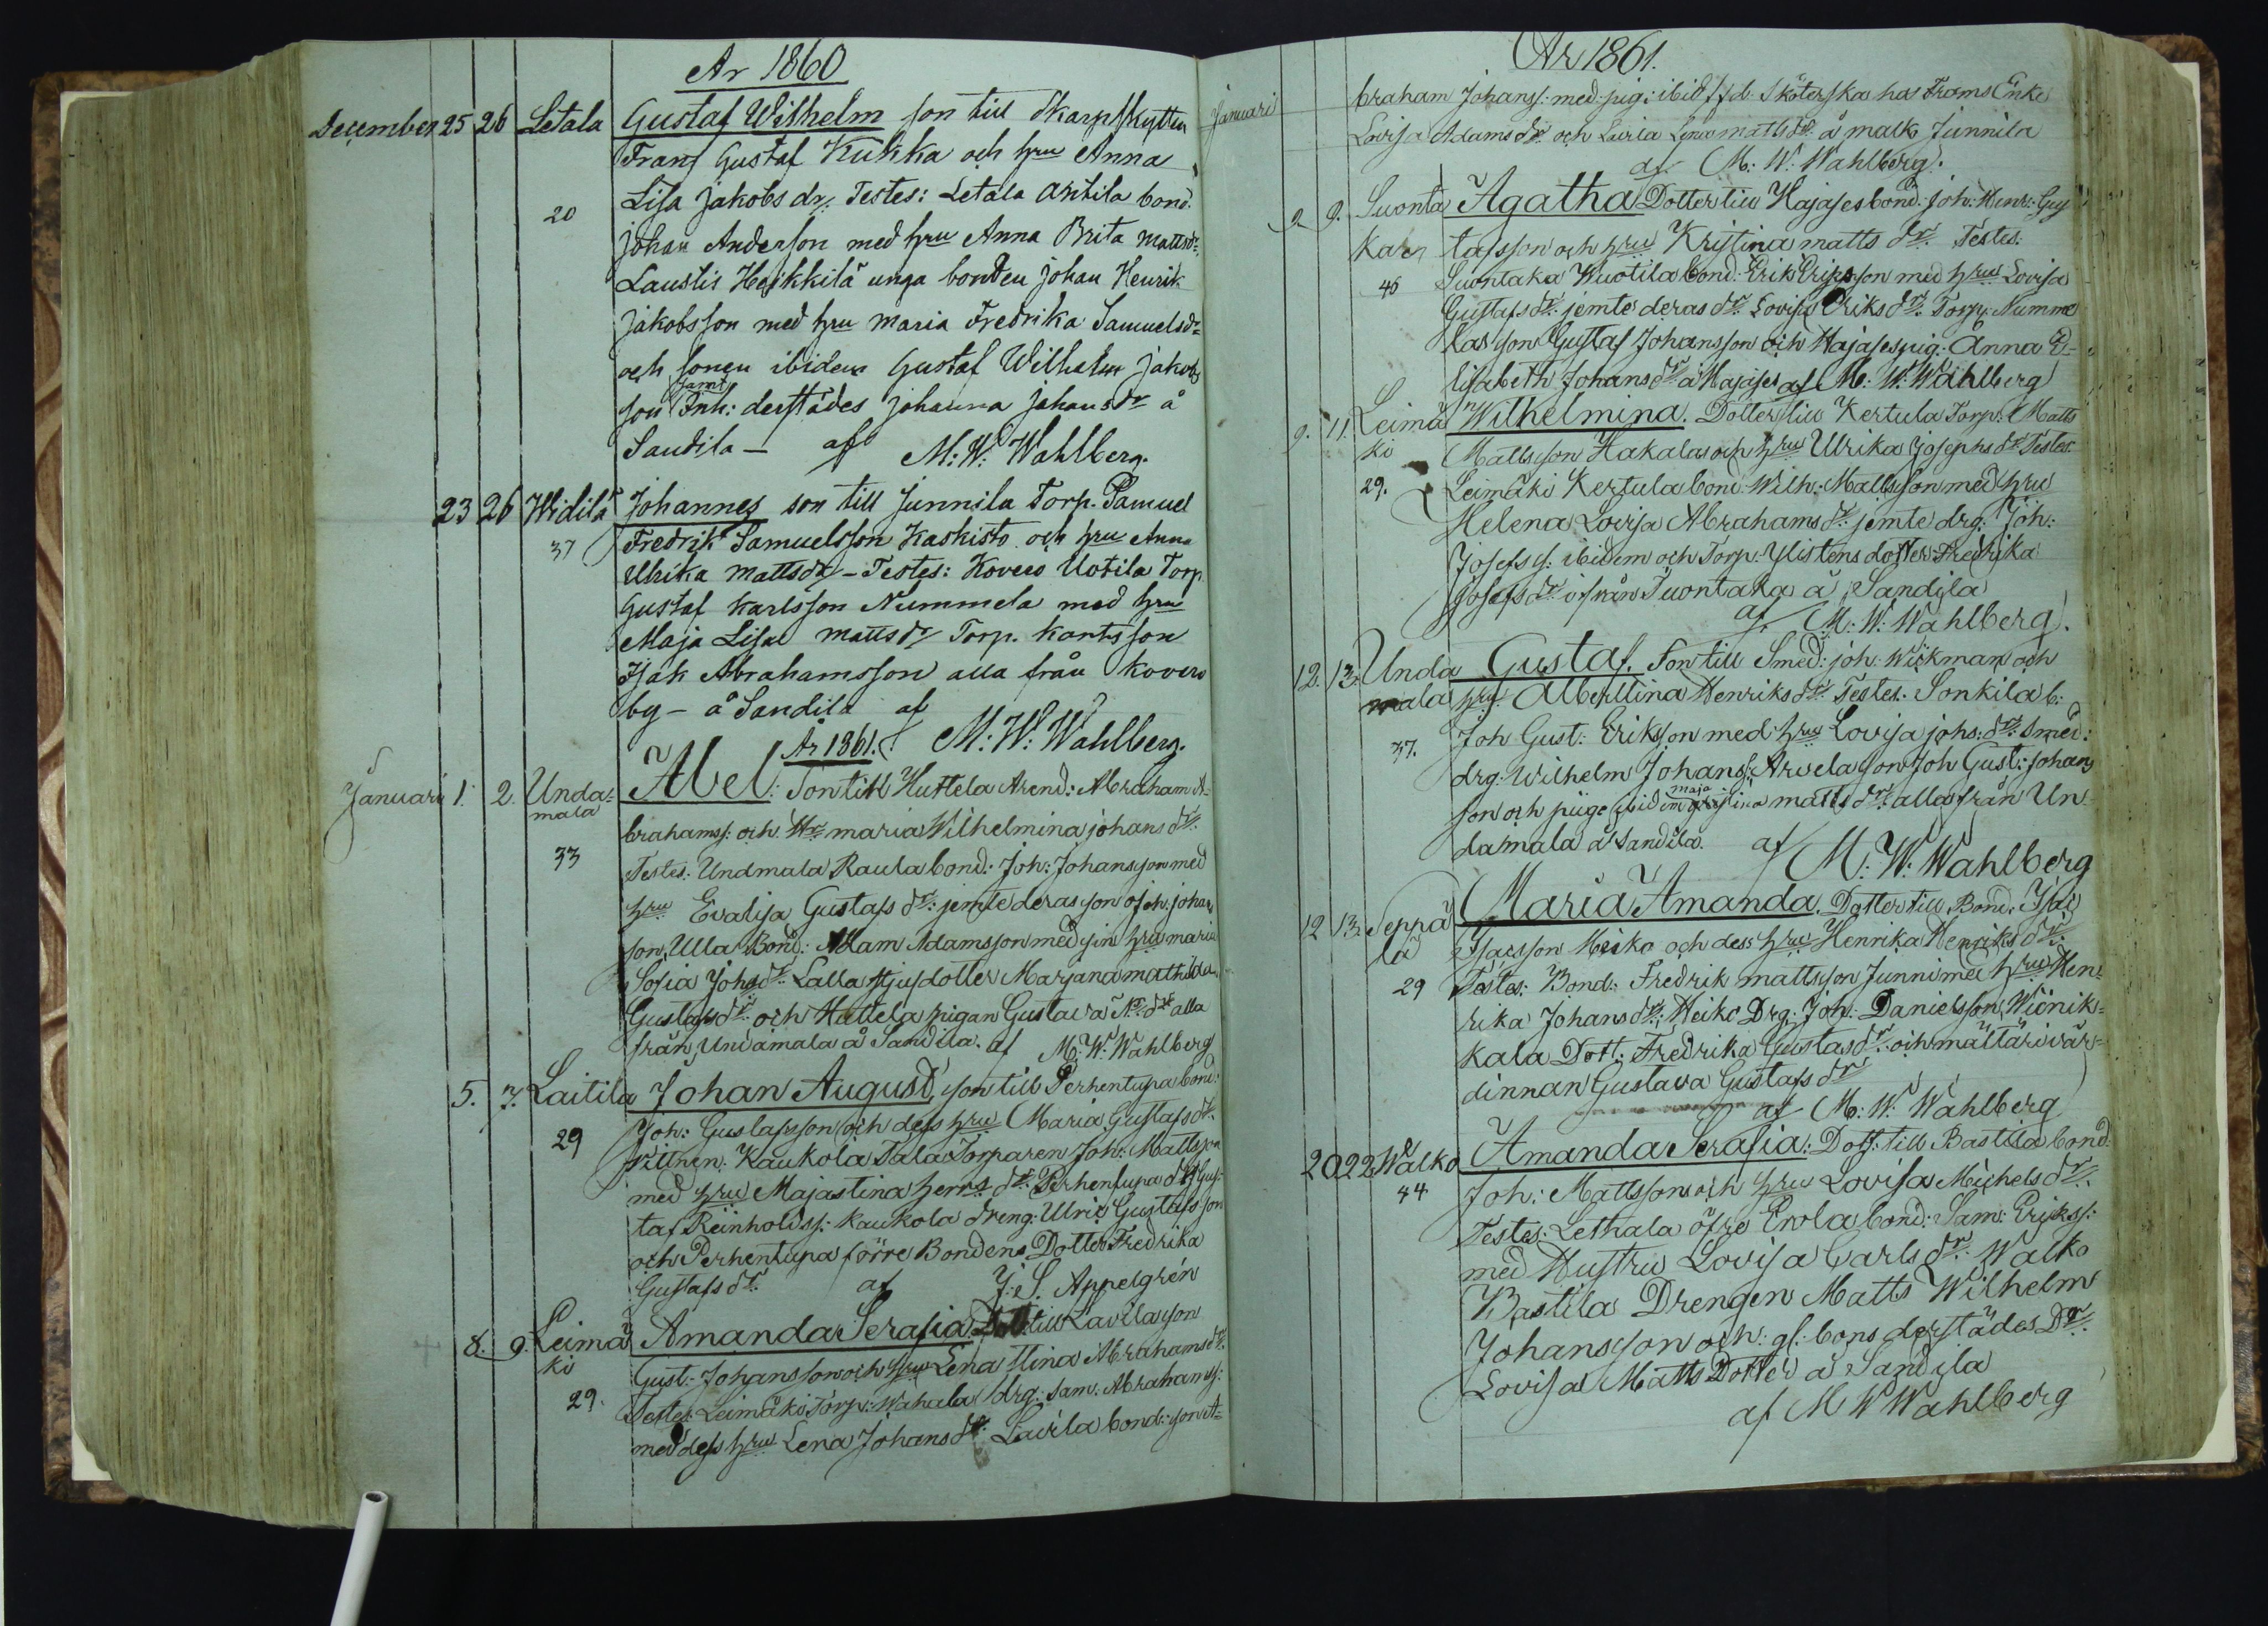 Ar 1860
December 25 26 Letala Gustaf Wilhelm son till skarpskytten
Frans Gustaf Kukka och hru Anna
Lisa Jakobs dr. Testes: Letala Antila bond.
20
Johan Anderson med hru Anna Brita Mattsdr.
Laustis Heikkilä unga bonden Johan Henrik
Jakobsson med hru Maria Fredrika Samuelsdr
och sonen ibidem Gustaf Wilhelm Jakobs
son jemt Inh: derstädes Johanna Johansdr å
Sandila — af M: W: Wahlberg.
23 26 Widilä Johannes son till Junnila Torp. Samuel
37 Fredrik Samuelsson Kaskisto och hru Anna
Ulrika Mattsdr – Testes: Kovero Uotila Torp
Gustaf Karlsson Nummela med hru
Maja Lisa Mattsdr Torp. Karlsson
Isak Abrahamsson alla från Kovero
by – å Sandila af
Ar 1861. M: W: Wahlberg.
Januari 1. 2. Unda= Abel: Son till Huttela Arend: Abraham A=
mala
brahams: och Hr Maria Wilhelmina Johans dr:
33
Testes: Undmala Raula bond: Joh: Johansson med
hru Evalisa Gustafs dr: jemte deras son Joh: Johans
son, Ulla Bond: Adam Adamsson med sin hru Maria
Sofia Johsdr: Lalla Hjusdotter Marjana Mathilda
Gustafsdr: och Huttela pigan Gustava dr alla
från Undamala å Sandila. af M: W: Wahlberg
5. 7. Laitila Johan August, son till Perhentupa bond:
29 Joh: Gustafsson och dess hru Maria Gustafs dr:
Vittnen: Kaukola Tala Torparen Joh: Mattsson
med hru Majastina Henrs dr: Perhentupa Gus=
taf Reinholdss: Kaukola dreng: Ulric Gustafsson
och Perhentupa förre Bondens Dotter Fredrika
Gustafs dr: af J: S. Appelgrén
8. 9. Leimä Amanda Serafia till Lavila son
ki Gust: Johansson och hru Lena Stina Abrahams dr:
29. Testes: Leimäki Torp: Wahala drg: Sam: Abrahams:
med dess hru Lena Johans dr: Lavila bond: son A=
Ar 1861.
Januari braham Johanss: med pig: ibid f.d. Sköterska has Frams Enke
Lovisa Adamsdr och Lavila Mattsdr: å malk Junnila
af M: W. Wahlberg.
2 9. Suonta Agatha Dotter till Hajases bond: Joh: Henr: Gus
kaen tafsson och hru Kristina Matts dr: Testes:
46 Suontaka Wuotila bond: Erik Eriksson med hru Lovisa
Gustafsdr: jemte deras dr: Lovisa Eriksdr: Torp: Numme
las son Gustaf Johansson och Hajases pig: Anna E=
lisabeth Johansdr å Hajases af M: W: Wahlberg
9. 11. Leimä Wilhelmina. Dotter till Kertula Torp: Matts
ki Mattsson Hakala och hru Ulrika Josephs dr Testes:
29. Leimäki Kertula bond: Wilh: Mattsson med hru
Helena Lovisa Abrahams dr: jemte drg: Joh:
Josefss: ibidem och Torp: Ylistens dotter Fredrika
Josefsdr ifrån Suontaka å Sandila
af M: W: Wahlberg.
12. 13. Unda Gustaf. Son till Smed: Joh: Wickman och
mala hru Albertina Henriks dr: Testes: Sonkila b:
37. Joh Gust: Eriksson med hru Lovisa Johs: dr: Smed:
drg: Wilhelm Johanss: Arvela son Joh Gust: Johans
son och piige ibidem Maja Stina Matts dr: alla från Un
damala å Sandila. af M: W: Wahlberg
12 13. Seppä Maria Amanda. Dotter till Bond: Isac
lä Isacsson Meiko och dess hru Henrika Henriks dr:
29 Testes: Bond: Fredrik Mattsson Junni med hru Hen=
rika Johans dr: Heiko Drg: Joh: Danielsson, Wiinik=
kala Dott: Fredrika Gustafsdr: och mältäri vär=
dinnan Gustava Gustafs dr
af M: W: Wahlberg
20 22 Walko Amanda Serafia: Dott: till Bastila bond
44 Joh: Mattsson och hru Lovisa Michels dr:
Testes: Lethala öfre Erola bond: Sam: Erikss:
med Hustru Lovisa Carls dr: Walko
Bastila Drengen Matts Wilhelm
Johansson och: gl: bons derstädes Dr:
Lovisa Matts Dotter å Sandila
af M W Wahlberg